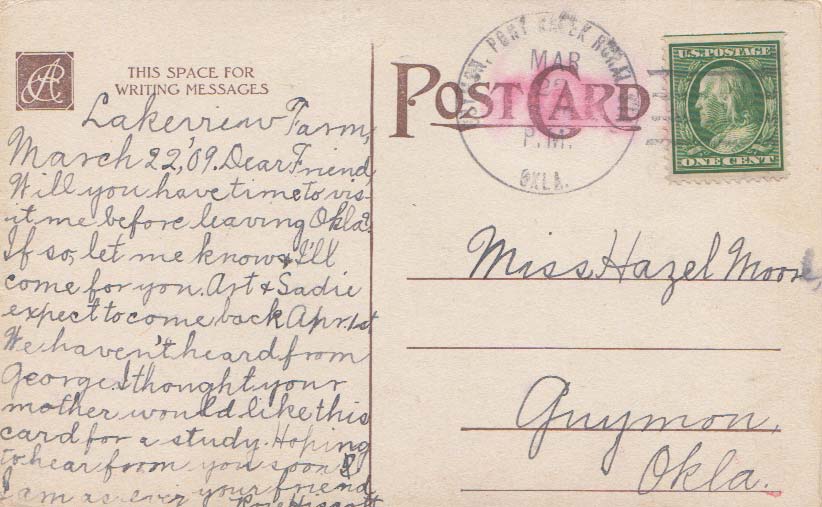 THIS SPACE FOR
WRITING MESSAGES
Lakeview Farm,
March 22,'09. Dear Friend,
Will you have time to vis-
it me before leaving Okla?
If so, let me know & I'll
come for you. Art & Sadie
expect to come back Apr. 1st
We haven't heard from
George. I thought your
mother would like this
card for a study. Hoping
to hear form you soon &
I am as ever your friend
POST CARD
PONY CREEK RURAL
MAR
22
P.M.
OKLA.
U.S. POSTAGE
ONE CENT
Miss Hazel Moore,
Guymon,
Okla.